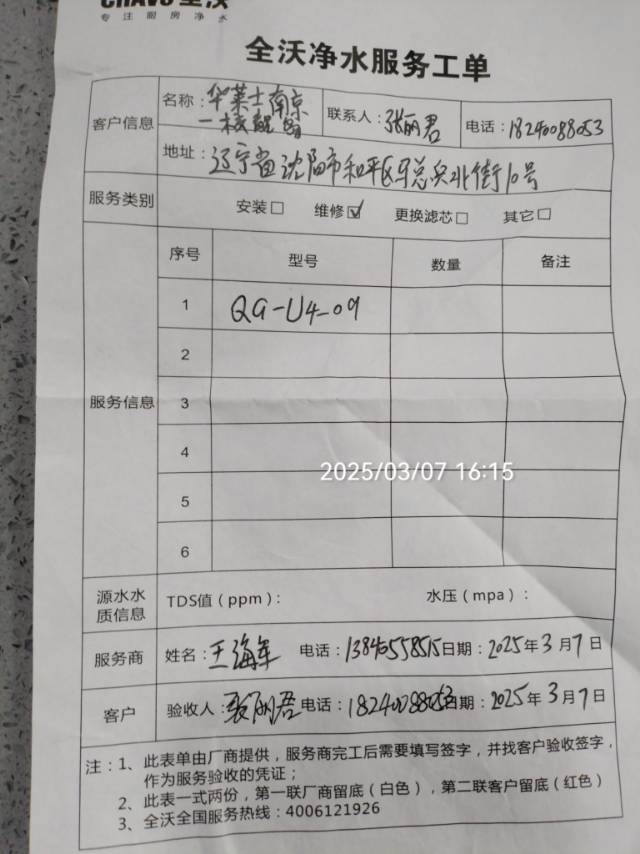 专注厨房净水
全沃净水服务工单
客户信息
名称：华莱士南京
一校
联系人：张丽君
电话：18240088053
地址：辽宁省沈阳市和平区 北街10号
服务类别 安装□ 维修☑ 更换滤芯□ 其它□
服务信息
序号 型号 数量 备注
1 QG-U4-09
2
3
4
2025/03/07 16:15
5
6
源水水质信息 TDS值（ppm）： 水压（mpa）：
服务商 姓名：王海军 电话：13840558515 日期：2025年3月7日
客户 验收人：张丽君 电话：18240088053 日期：2025年3月7日
注：1、此表单由厂商提供，服务商完工后需要填写签字，并找客户验收签字，
作为服务验收的凭证；
2、此表一式两份，第一联厂商留底（白色），第二联客户留底（红色）
3、全沃全国服务热线：4006121926